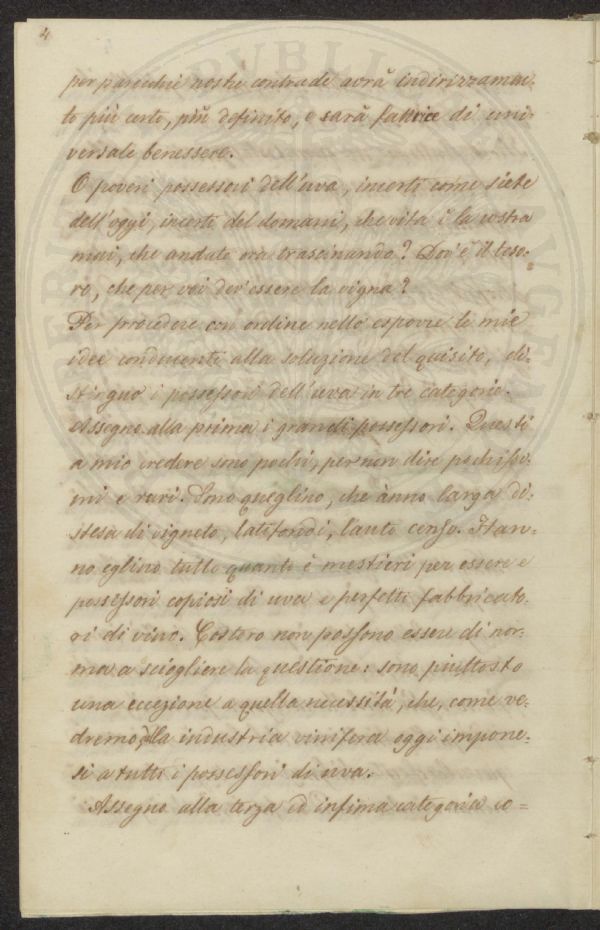 4
per parecchie nostre contrade avrà indirizzamen-
to più certo, più definito, e sarà fattrice di uni-
versale benessere.
O poveri possessori dell'uva, incerti come siete
dell'oggi, incerti del domani, che vita è la vostra
mai, che andate ora trascinando? Dov'è il teso-
ro, che per voi dev'essere la vigna?
Per procedere con ordine nello esporre le mie
idee conducenti alla soluzione del quisito, di-
stinguo i possessori dell'uva in tre categorie.
Assegno alla prima i grandi possessori. Questi
a mio credere sono pochi, per non dire pochissi-
mi e rari. Sono queglino, che ànno larga di-
stesa di vigneto, latifondi, lauto censo. Han-
no eglino tutto quanto è mestieri per essere e
possessori copiosi di uva e perfetti fabbricato-
ri di vino. Costoro non possono essere di nor-
ma a sciogliere la questione: sono piuttosto
una eccezione a quella necessità, che, come ve-
dremo, la industria vinifera oggi impone-
si a tutti i possessori di uva.
Assegno alla terza ed infima categoria co-
PVBLIC